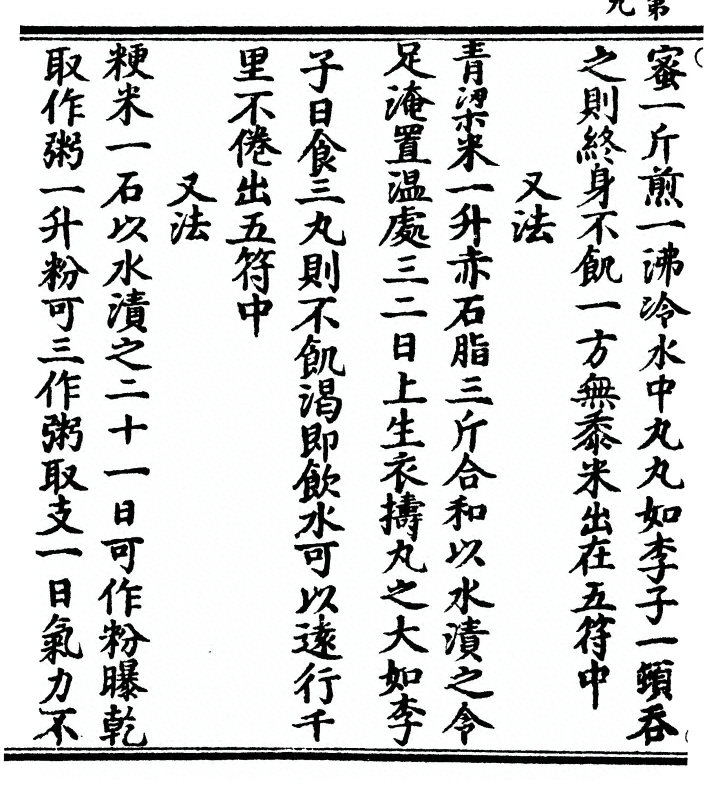 蜜一斤煎一沸冷水中丸丸如李子一頓吞
之則終身不飢一方無黍米出在五符中
又法
青梁米一升赤石脂三斤合和以水漬之令
足淹置温處三二日上生衣擣丸之大如李
子日食三丸則不飢渴即飲水可以遠行千
里不倦出五符中
又法
粳米一石以水漬之二十一日可作粉曝乾
取作粥一升粉可三作粥取支一日氣力不